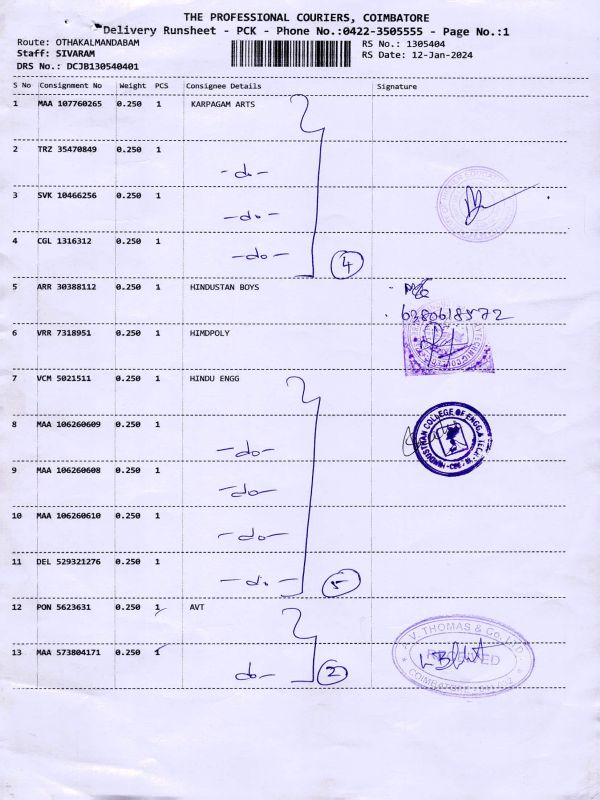 THE PROFESSIONAL COURIERS, COIMBATORE
Delivery Runsheet - PCK - Phone No.:0422-3505555 - Page No.:1
Route: OTHAKALMANDABAM RS No.: 1305404
Staff: SIVARAM RS Date: 12-Jan-2024
DRS No.: DCJB130540401
S No Consignment No Weight PCS Consignee Details Signature
1 MAA 107760265 0.250 1 KARPAGAM ARTS
2 TRZ 35470849 0.250 1
-do-
3 SVK 10466256 0.250 1
-do-
4 CGL 1316312 0.250 1
-do- 4
5 ARR 30388112 0.250 1 HINDUSTAN BOYS
6380618572
6 VRR 7318951 0.250 1 HIMDPOLY
7 VCM 5021511 0.250 1 HINDU ENGG
HINDUSTHAN COLLEGE OF ENGG & TECH.
8 MAA 106260609 0.250 1
-do-
9 MAA 106260608 0.250 1
-do-
10 MAA 106260610 0.250 1
-do-
11 DEL 529321276 0.250 1
-do- 5
12 PON 5623631 0.250 1 AVT
V. THOMAS & Co. LTD.
13 MAA 573804171 0.250 1
do- 2
COIMBATORE